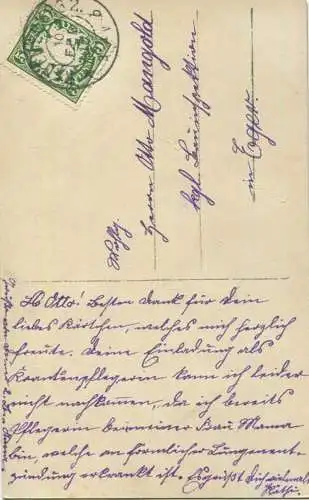 Herrn Otto Mangold
kgl. Bauinspektion
in Eger.
Lb Otto! Besten Dank für Dein
liebes Kärtchen, welches mich herzlich
freute. Deine Einladung als
Krankenpflegerin kann ich leider
nicht nachkommen, da ich bereits
Pflegerin bei meiner Bau Mama
bin, welche an förmlicher Lungenent-
zündung erkrankt ist. Es grüßt Dich
Käthi.